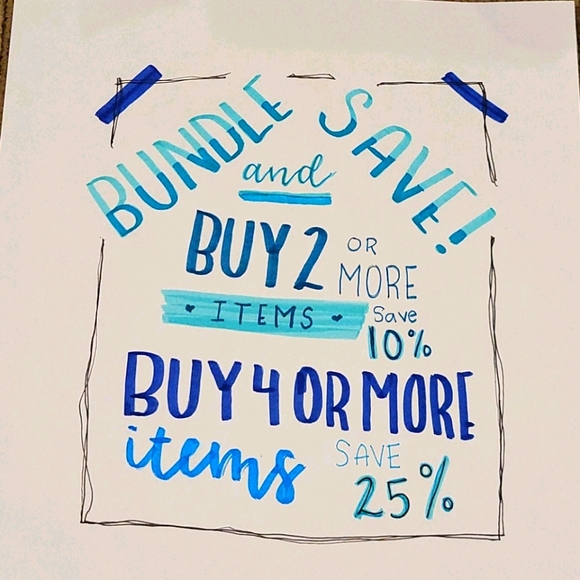 BUNDLE and SAVE!
BUY 2 OR MORE
ITEMS Save 10%
BUY 4 OR MORE
items SAVE 25%